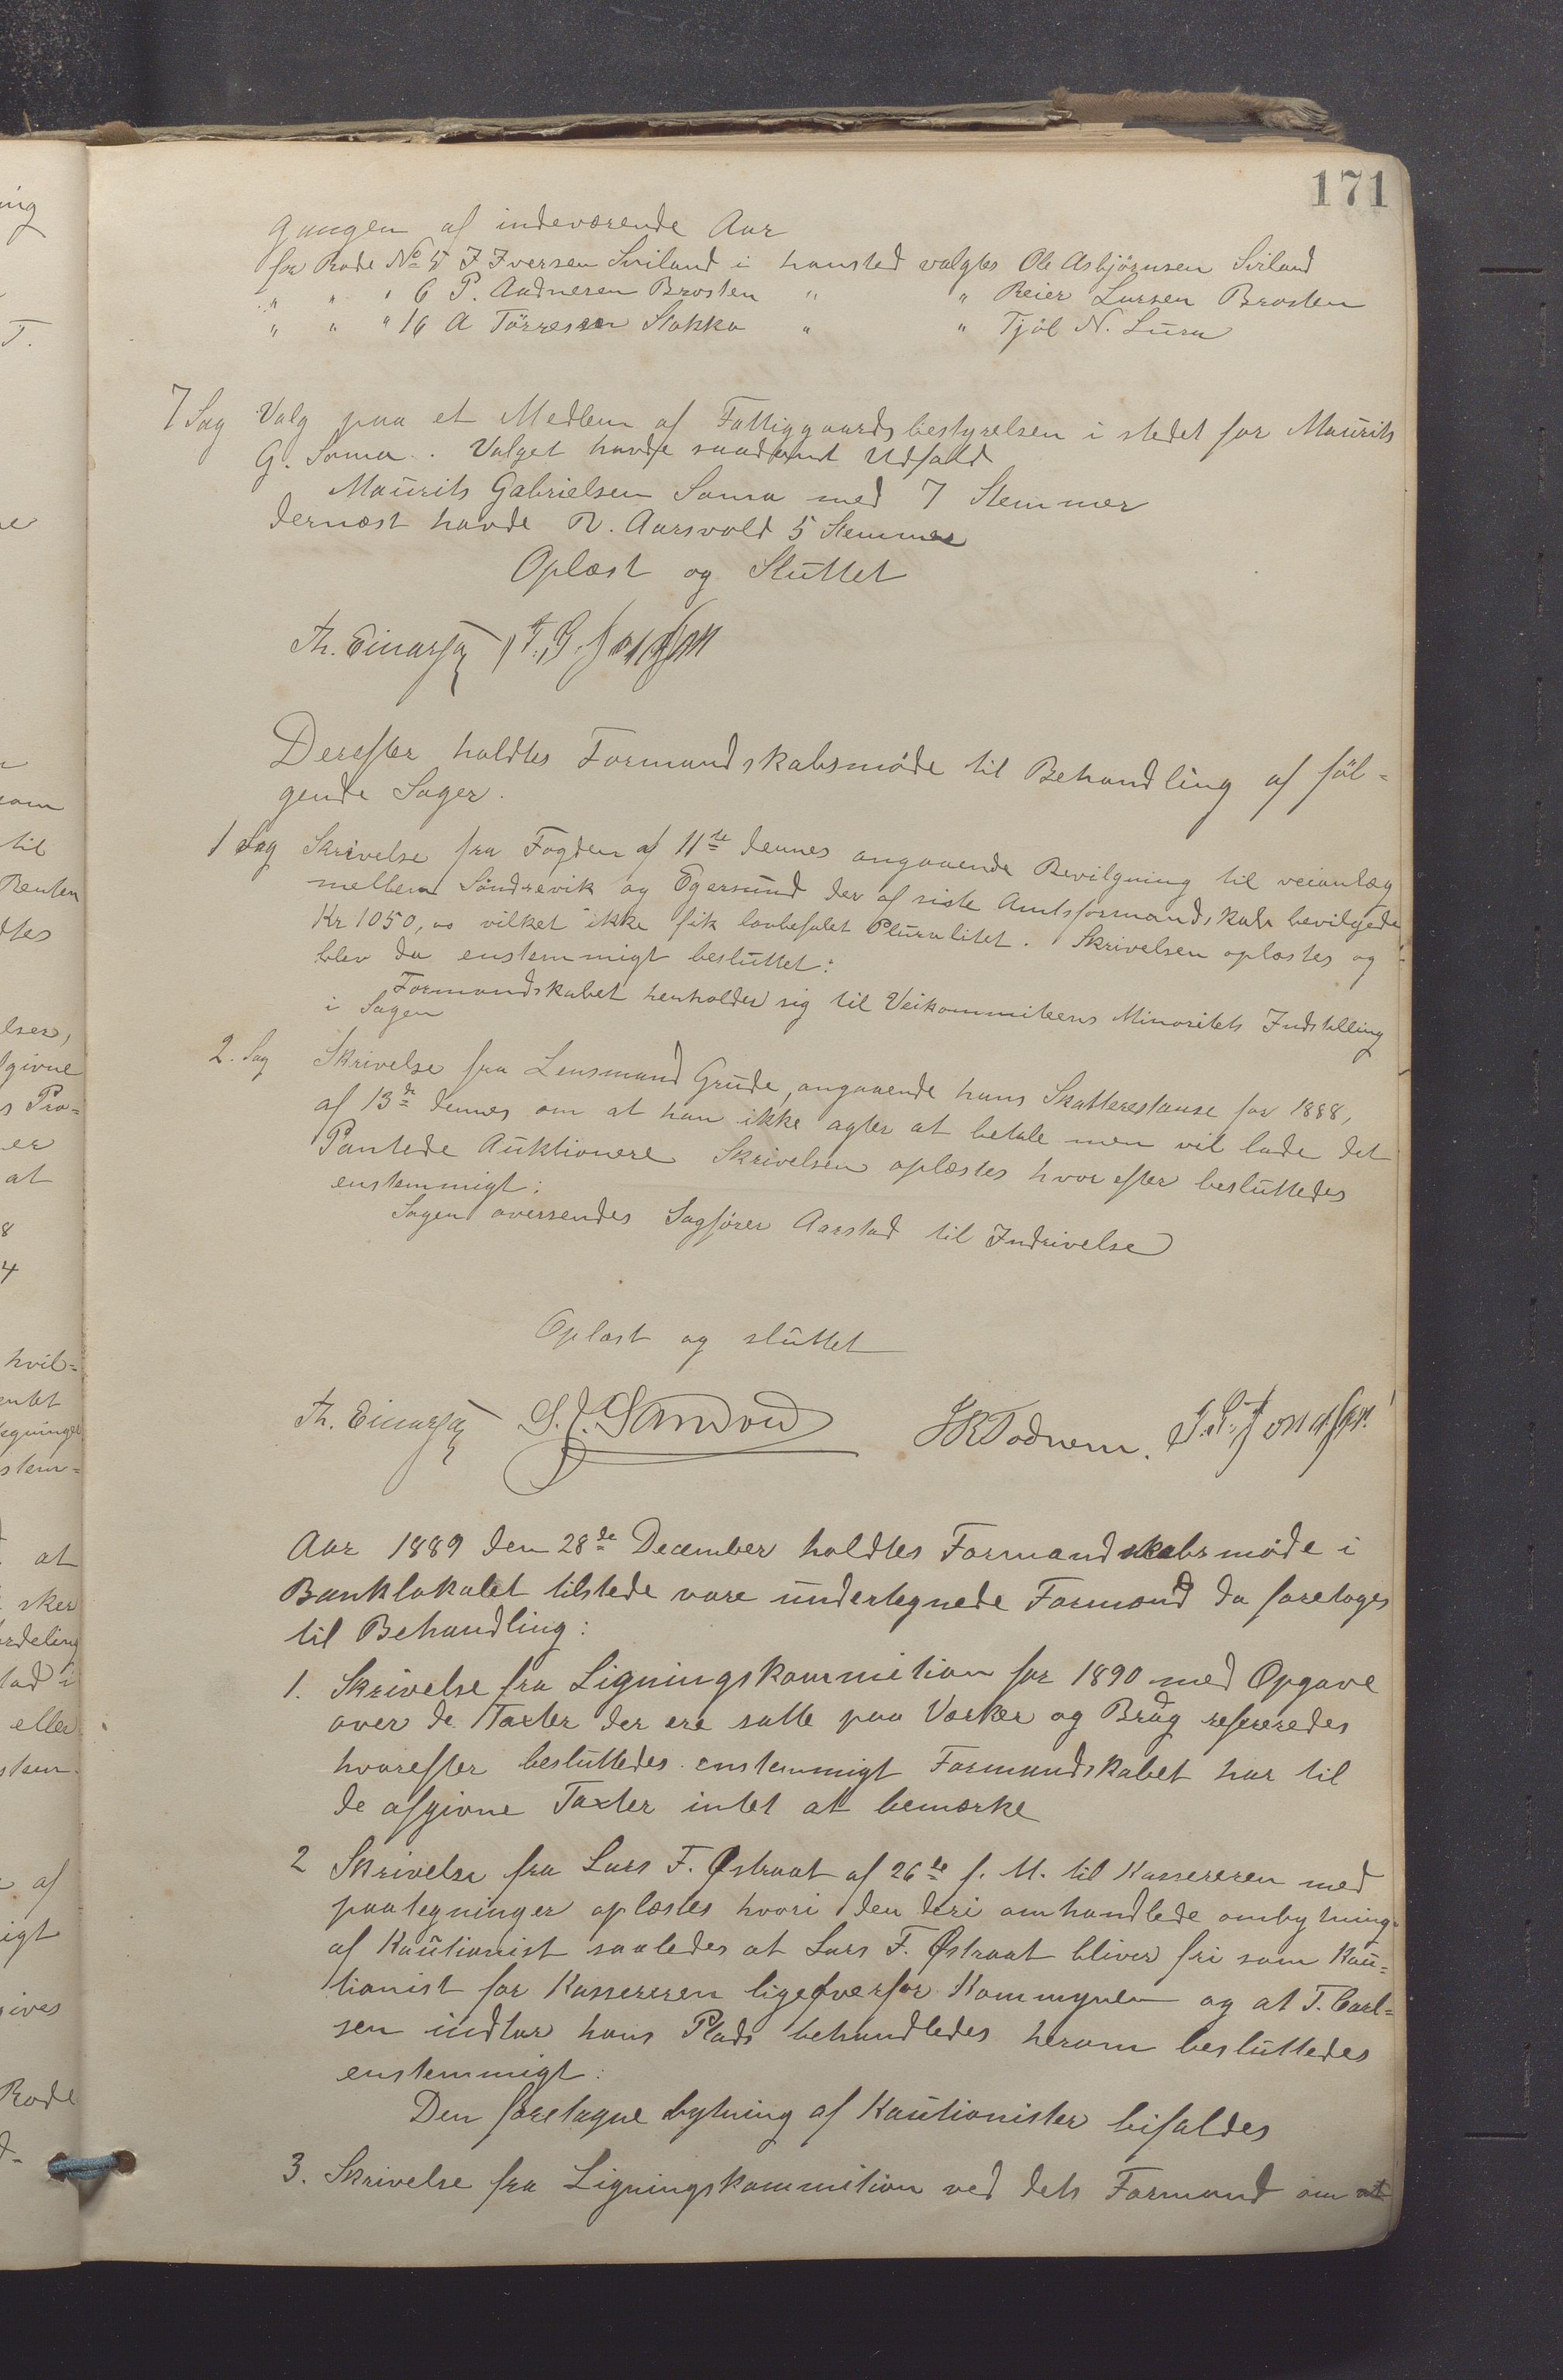 171
gangen af indeværende Aar
for Rode No 5 I Iversen Sviland i hansted valgtes Ole Asbjörnsen Sviland
" " " 6 P. Aadnesen Brosten " " Reier Larsen Brosten
" " " 16 A Törressen Stokka " " Tjöl N. Lura
7 Sag Valg paa et Medlem af Fattiggaardsbestyrelsen i stedet for Maurits
G. Soma. Valget havde saadant Udfald
Maurits Gabrielsen Soma med 7 Stemmer
dernæst havde R. Aarsvold 5 Stemmer
Oplæst og Sluttet
Th. Einarsen
Derefter holdtes Formandskabsmöde til Behandling af föl-
gende Sager.
1 Sag Skrivelse fra Fogden af 11te dennes angaaende Bevilgning til veianlæg
mellem Söndrevik og Egersund der af siste Amtsformandskab bevilgede
Kr 1050,00 vilket ikke fik lovbefalet Pluralitet. Skrivelsen oplæstes og
blev da enstemmigt besluttet:
Formandskabet henholder sig til Veikommiteens Minoritets Indstilling
i Sagen
2. Sag Skrivelse fra Lensmand Grude, angaaende hans Skatterestanse for 1888,
af 13de dennes om at han ikke agter at betale men vil lade det
Pantede Auktionere Skrivelsen oplæstes hvorefter besluttedes
enstemmigt:
Sagen oversendes Sagförer Aarstad til Indrivelse
Oplæst og sluttet
Th. Einarsen S. J. Sandvid H R Todnem.
Aar 1889 den 28de December holdtes Formandskabsmöde i
Banklokalet tilstede vare undertegnede Formænd da foretoges
til Behandling:
1. Skrivelse fra Ligningskommition for 1890 med Opgave
over de Taxter der ere satte paa Værker og Brug refereredes
hvorefter besluttedes enstemmigt Formandskabet har til
de afgivne Taxter intet at bemærke
2 Skrivelse fra Lars F. Østraat af 26de f. M. til Kassereren med
paategninger oplæstes hvori den deri omhandlede ombytning
af Kautionist saaledes at Lars F. Østraat bliver fri som Kau-
tionist for Kassereren ligeoverfor Kommunen og at T. Carl-
sen indtar hans Plads behandledes herom besluttedes
enstemmigt:
Den foretagne bytning af Kautionister bifaldes
3. Skrivelse fra Ligningskommition ved dets Formand om at